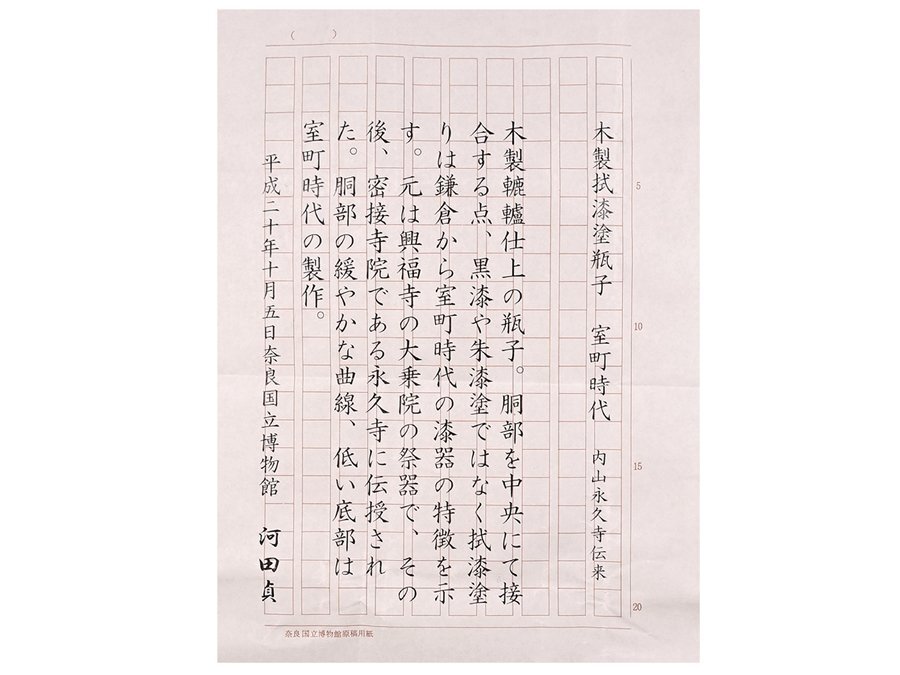 （　　）
木製拭漆塗瓶子　室町時代　内山永久寺伝来
木製轆轤仕上の瓶子。胴部を中央にて接
合する点、黒漆や朱漆塗ではなく拭漆塗
りは鎌倉から室町時代の漆器の特徴を示
す。元は興福寺の大乗院の祭器で、その
後、密接寺院である永久寺に伝授され
た。胴部の緩やかな曲線、低い底部は
室町時代の製作。
平成二十年十月五日奈良国立博物館　河田貞
5
10
15
20
奈良国立博物館原稿用紙